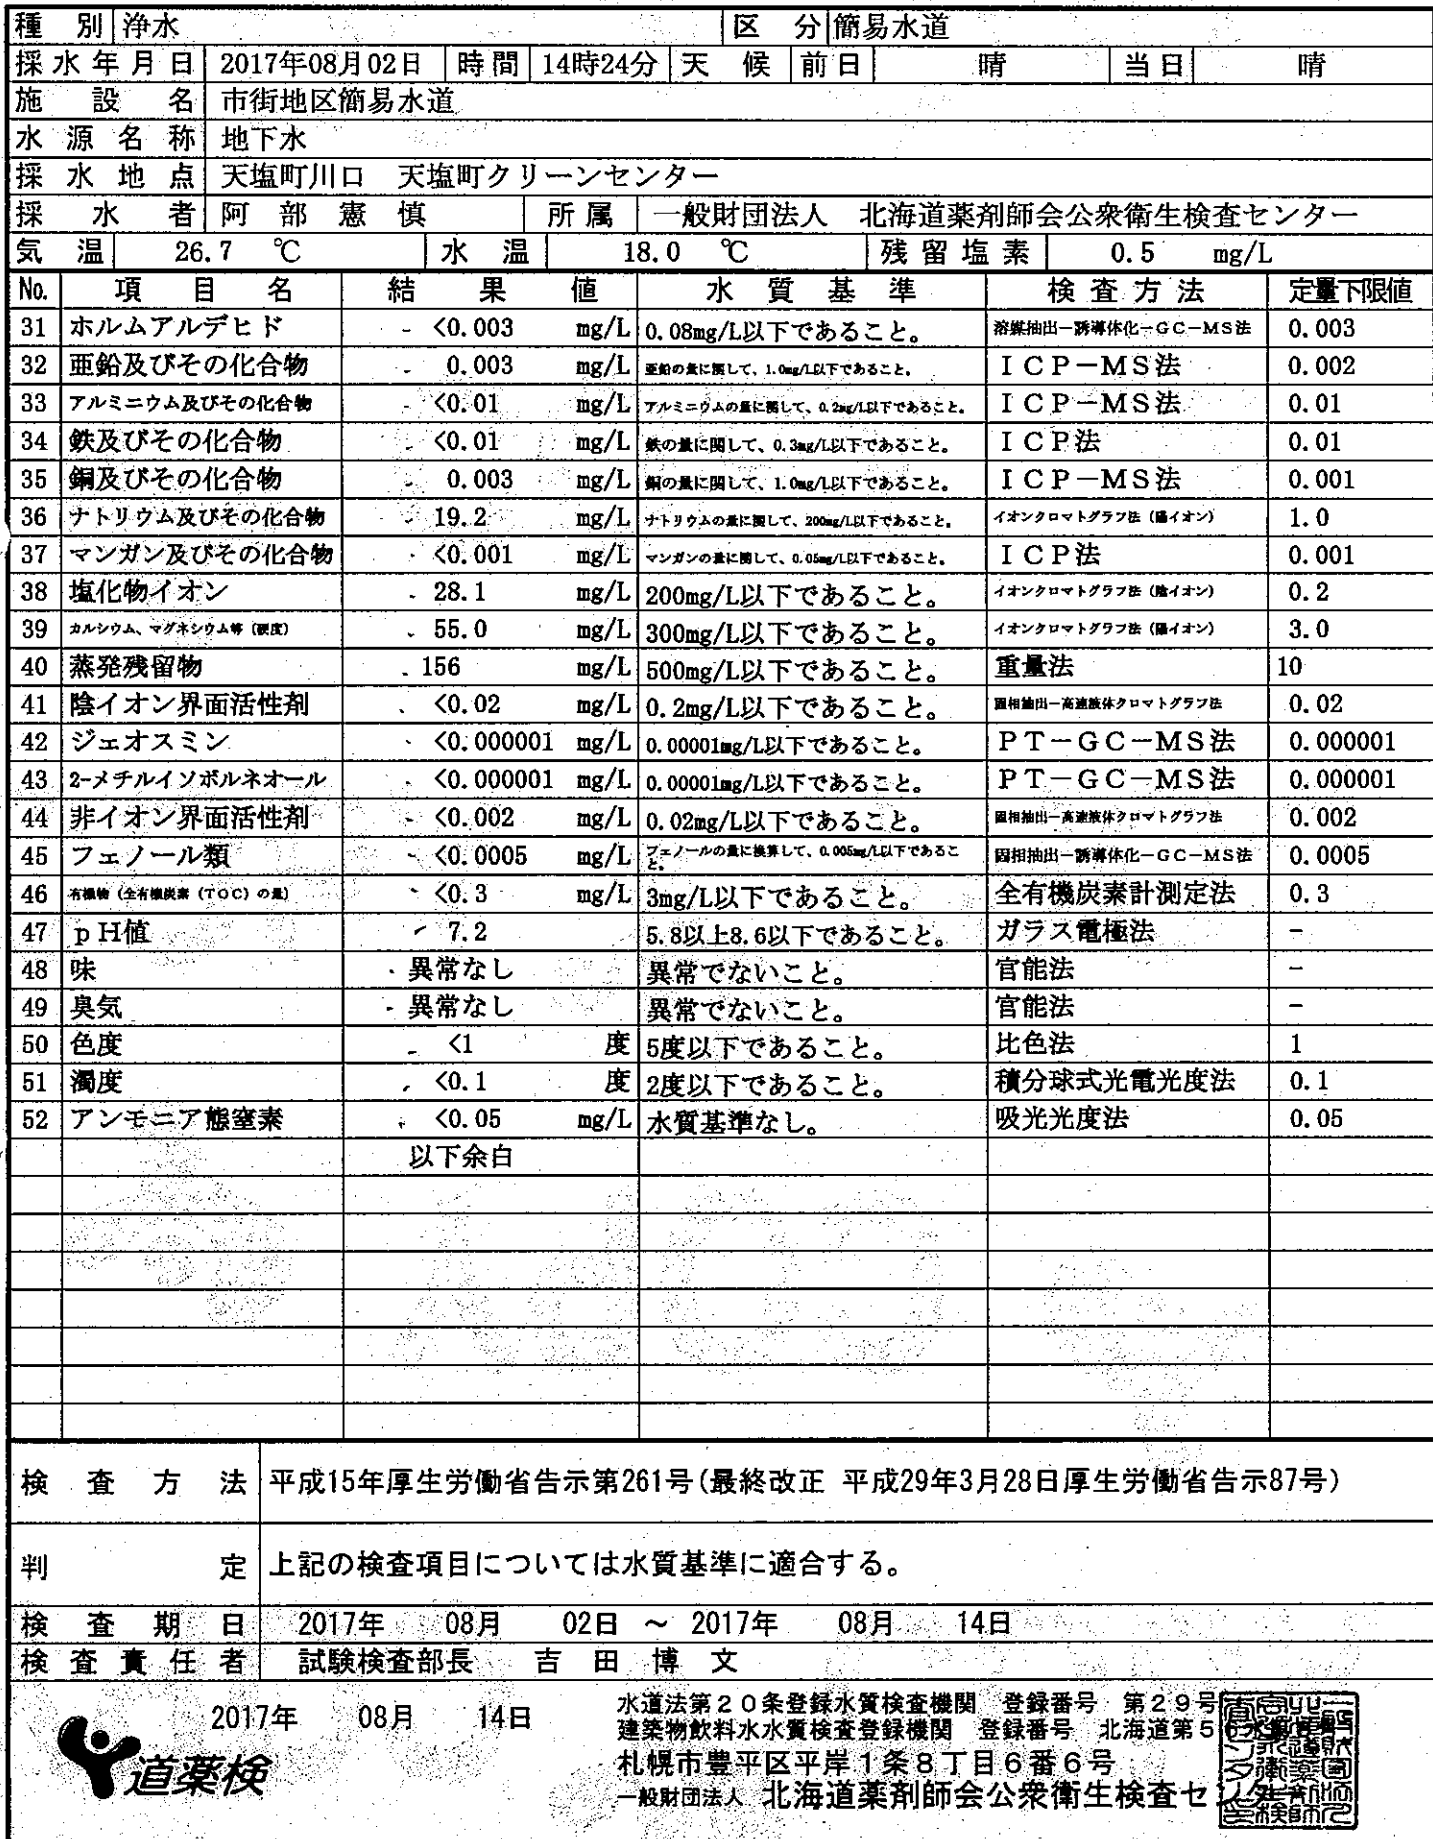 種別 浄水 区分 簡易水道
採水年月日 2017年08月02日 時間 14時24分 天候 前日 晴 当日 晴
施設名 市街地区簡易水道
水源名称 地下水
採水地点 天塩町川口 天塩町クリーンセンター
採水者 阿部憲慎 所属 一般財団法人 北海道薬剤師会公衆衛生検査センター
気温 26.7 ℃ 水温 18.0 ℃ 残留塩素 0.5 mg/L
No. 項目名 結果値 水質基準 検査方法 定量下限値
31 ホルムアルデヒド <0.003 mg/L 0.08mg/L以下であること。 溶媒抽出-誘導体化-GC-MS法 0.003
32 亜鉛及びその化合物 0.003 mg/L 亜鉛の量に関して、1.0mg/L以下であること。 ICP-MS法 0.002
33 アルミニウム及びその化合物 <0.01 mg/L アルミニウムの量に関して、0.2mg/L以下であること。 ICP-MS法 0.01
34 鉄及びその化合物 <0.01 mg/L 鉄の量に関して、0.3mg/L以下であること。 ICP法 0.01
35 銅及びその化合物 0.003 mg/L 銅の量に関して、1.0mg/L以下であること。 ICP-MS法 0.001
36 ナトリウム及びその化合物 19.2 mg/L ナトリウムの量に関して、200mg/L以下であること。 イオンクロマトグラフ法(陽イオン) 1.0
37 マンガン及びその化合物 <0.001 mg/L マンガンの量に関して、0.05mg/L以下であること。 ICP法 0.001
38 塩化物イオン 28.1 mg/L 200mg/L以下であること。 イオンクロマトグラフ法(陰イオン) 0.2
39 カルシウム、マグネシウム等(硬度) 55.0 mg/L 300mg/L以下であること。 イオンクロマトグラフ法(陽イオン) 3.0
40 蒸発残留物 156 mg/L 500mg/L以下であること。 重量法 10
41 陰イオン界面活性剤 <0.02 mg/L 0.2mg/L以下であること。 固相抽出-高速液体クロマトグラフ法 0.02
42 ジェオスミン <0.000001 mg/L 0.00001mg/L以下であること。 PT-GC-MS法 0.000001
43 2-メチルイソボルネオール <0.000001 mg/L 0.00001mg/L以下であること。 PT-GC-MS法 0.000001
44 非イオン界面活性剤 <0.002 mg/L 0.02mg/L以下であること。 固相抽出-高速液体クロマトグラフ法 0.002
45 フェノール類 <0.0005 mg/L フェノールの量に換算して、0.005mg/L以下であること。 固相抽出-誘導体化-GC-MS法 0.0005
46 有機物(全有機炭素(TOC)の量) <0.3 mg/L 3mg/L以下であること。 全有機炭素計測定法 0.3
47 pH値 7.2 5.8以上8.6以下であること。 ガラス電極法 -
48 味 異常なし 異常でないこと。 官能法 -
49 臭気 異常なし 異常でないこと。 官能法 -
50 色度 <1 度 5度以下であること。 比色法 1
51 濁度 <0.1 度 2度以下であること。 積分球式光電光度法 0.1
52 アンモニア態窒素 <0.05 mg/L 水質基準なし。 吸光光度法 0.05
以下余白
検査方法 平成15年厚生労働省告示第261号(最終改正 平成29年3月28日厚生労働省告示87号)
判定 上記の検査項目については水質基準に適合する。
検査期日 2017年 08月 02日 ~ 2017年 08月 14日
検査責任者 試験検査部長 吉田博文
2017年 08月 14日
水道法第20条登録水質検査機関 登録番号 第29号
建築物飲料水水質検査登録機関 登録番号 北海道第5
札幌市豊平区平岸1条8丁目6番6号
一般財団法人 北海道薬剤師会公衆衛生検査センター
道薬検